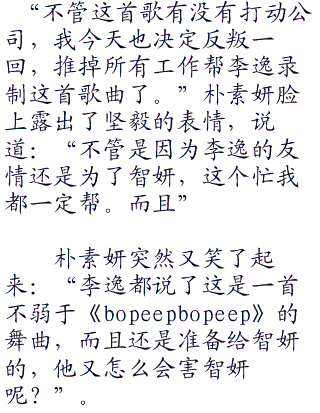 “不管这首歌有没有打动公
司，我今天也决定反叛一
回，推掉所有工作帮李逸录
制这首歌曲了。”朴素妍脸
上露出了坚毅的表情，说
道：“不管是因为李逸的友
情还是为了智妍，这个忙我
都一定帮。而且”
朴素妍突然又笑了起
来：“李逸都说了这是一首
不弱于《bopeepbopeep》的
舞曲，而且还是准备给智妍
的，他又怎么会害智妍
呢？”。